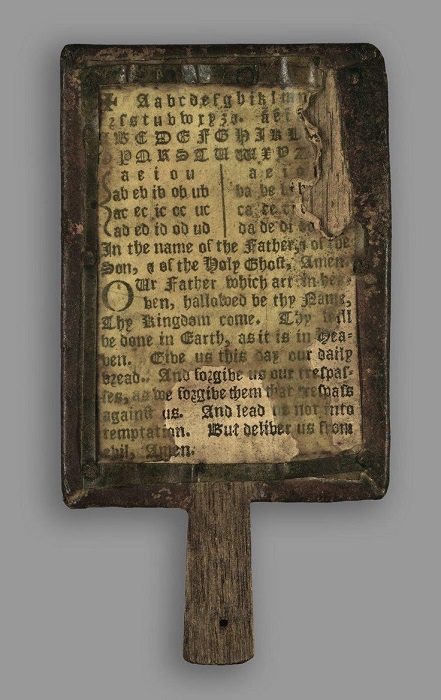 ✠ Aabcdefghiklmn
rſstuvwxyz. aei
ABCDEFGHIKL
OPQRSTUWXYZ
a e i o u   a e i o
ab eb ib ob ub   ba be bi
ac ec ic oc uc   ca ce ci
ad ed id od ud   da de di do
In the name of the Father, & of the
Son, & of the Holy Ghoſt, Amen.
OUr Father which art in
ven, hallowed be thy Name,
Thy Kingdom come. Thy will
be done in Earth, as it is in Hea-
ven. Give us this day our daily
bread. And forgive us our treſpaſ-
ſes, as we forgive them that treſpaſs
againſt us. And lead us not into
temptation. But deliver us from
evil, Amen.